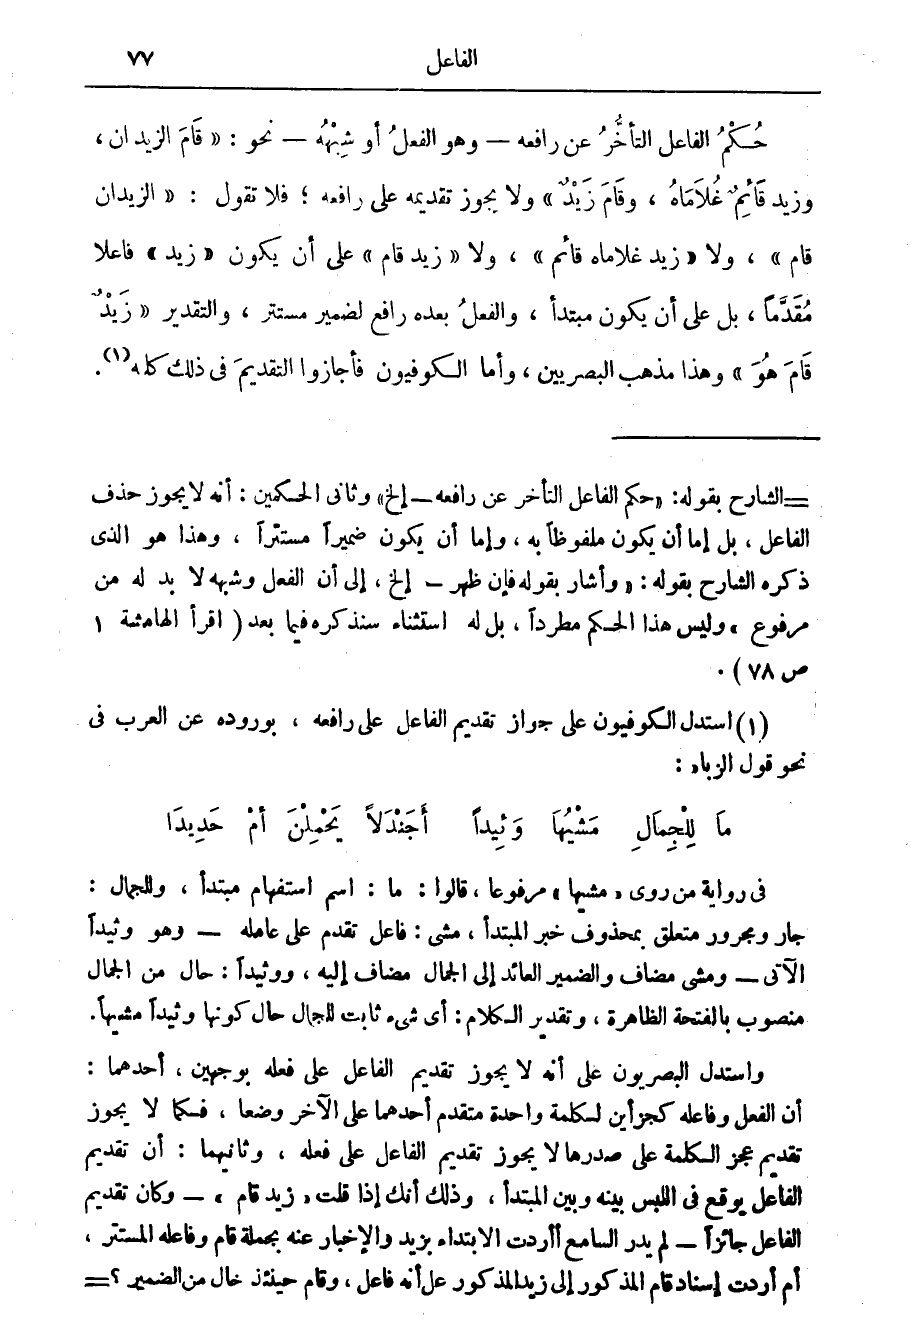 الفاعل ٧٧
حُكْمُ الفاعل التأخُّرُ عن رافعه — وهو الفعلُ أو شِبْهُه — نحو : « قَامَ الزيدان ،
وزيد قَائِمٌ غُلَامَاهُ ، وقَامَ زَيْدٌ » ولا يجوز تقديمه على رافعه ؛ فلا تقول : « الزيدان
قام » ، ولا « زيد غلاماه قائم » ، ولا « زيد قام » على أن يكون « زيد » فاعلا
مُقَدَّماً ، بل على أن يكون مبتدأ ، والفعلُ بعده رافع لضمير مستتر ، والتقدير « زَيْدٌ
قَامَ هُوَ » وهذا مذهب البصريين ، وأما الكوفيون فأجازوا التقديمَ فى ذلك كله (١).
= الشارح بقوله: «حكم الفاعل التأخر عن رافعه — إلخ» وثانى الحكمين : أنه لا يجوز حذف
الفاعل ، بل إما أن يكون ملفوظاً به ، وإما أن يكون ضميراً مستتراً ، وهذا هو الذى
ذكره الشارح بقوله : « وأشار بقوله فإن ظهر — إلخ ، إلى أن الفعل وشبهه لا بد له من
مرفوع » وليس هذا الحكم مطرداً ، بل له استثناء سنذكره فيما بعد ( اقرأ الهامشة ١
ص ٧٨ ) .
(١) استدل الكوفيون على جواز تقديم الفاعل على رافعه ، بوروده عن العرب فى
نحو قول الزباء :
مَا لِلْجِمَالِ مَشْيُهَا وَئِيداً أَجَنْدَلاً يَحْمِلْنَ أَمْ حَدِيدَا
فى رواية من روى « مشيها » مرفوعا ، قالوا : ما : اسم استفهام مبتدأ ، وللجمال :
جار ومجرور متعلق بمحذوف خبر المبتدأ ، مشى : فاعل تقدم على عامله — وهو وئيداً
الآتى — ومشى مضاف والضمير العائد إلى الجمال مضاف إليه ، ووئيداً : حال من الجمال
منصوب بالفتحة الظاهرة ، وتقدير الكلام : أى شىء ثابت للجمال حال كونها وئيداً مشيها.
واستدل البصريون على أنه لا يجوز تقديم الفاعل على فعله بوجهين ، أحدهما :
أن الفعل وفاعله كجزأين لكلمة واحدة متقدم أحدهما على الآخر وضعا ، فكما لا يجوز
تقديم عجز الكلمة على صدرها لا يجوز تقديم الفاعل على فعله ، وثانيهما : أن تقديم
الفاعل يوقع فى اللبس بينه وبين المبتدأ ، وذلك أنك إذا قلت « زيد قام » — وكان تقديم
الفاعل جائزاً — لم يدر السامع أأردت الابتداء بزيد والإخبار عنه بجملة قام وفاعله المستتر ،
أم أردت إسناد قام المذكور إلى زيد المذكور على أنه فاعل ، وقام حينئذ خال من الضمير ؟ =